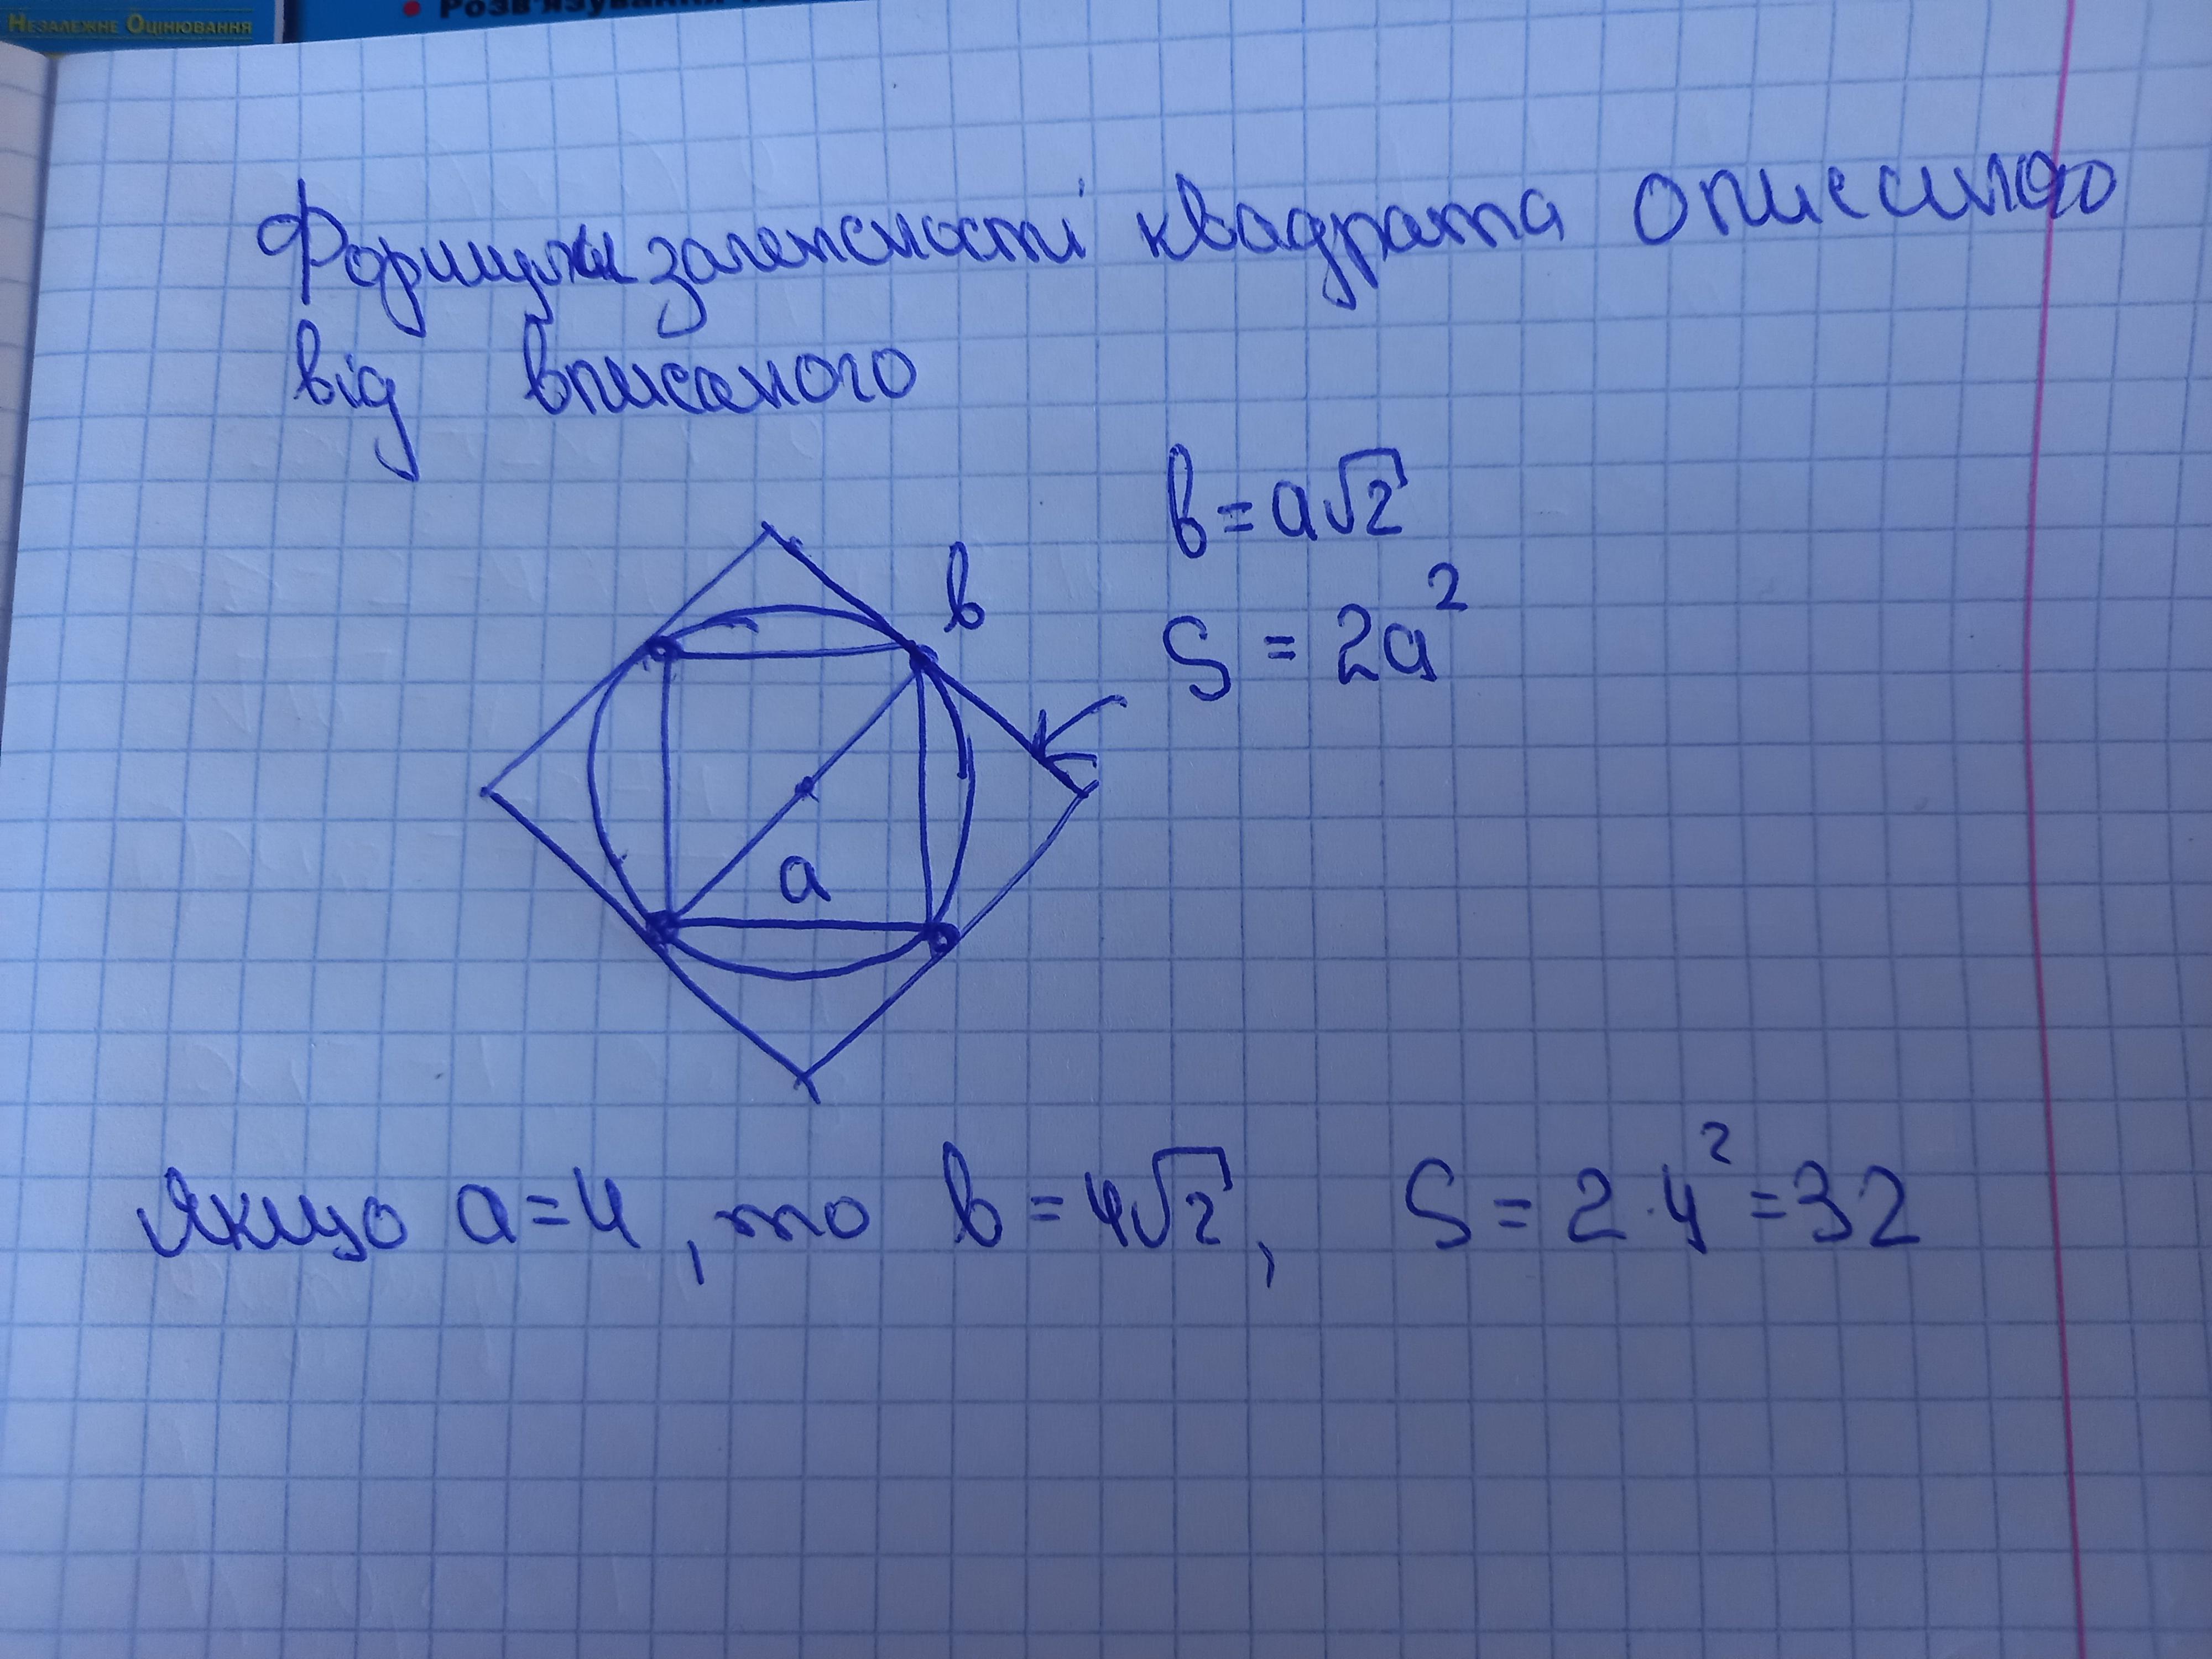 НЕЗАЛЕЖНЕ ОЦІНЮВАННЯ
Формули залежності квадрата описаного
від вписаного
в = a√2
S = 2a²
в
a
Якщо a = 4, то в = 4√2, S = 2·4² = 32